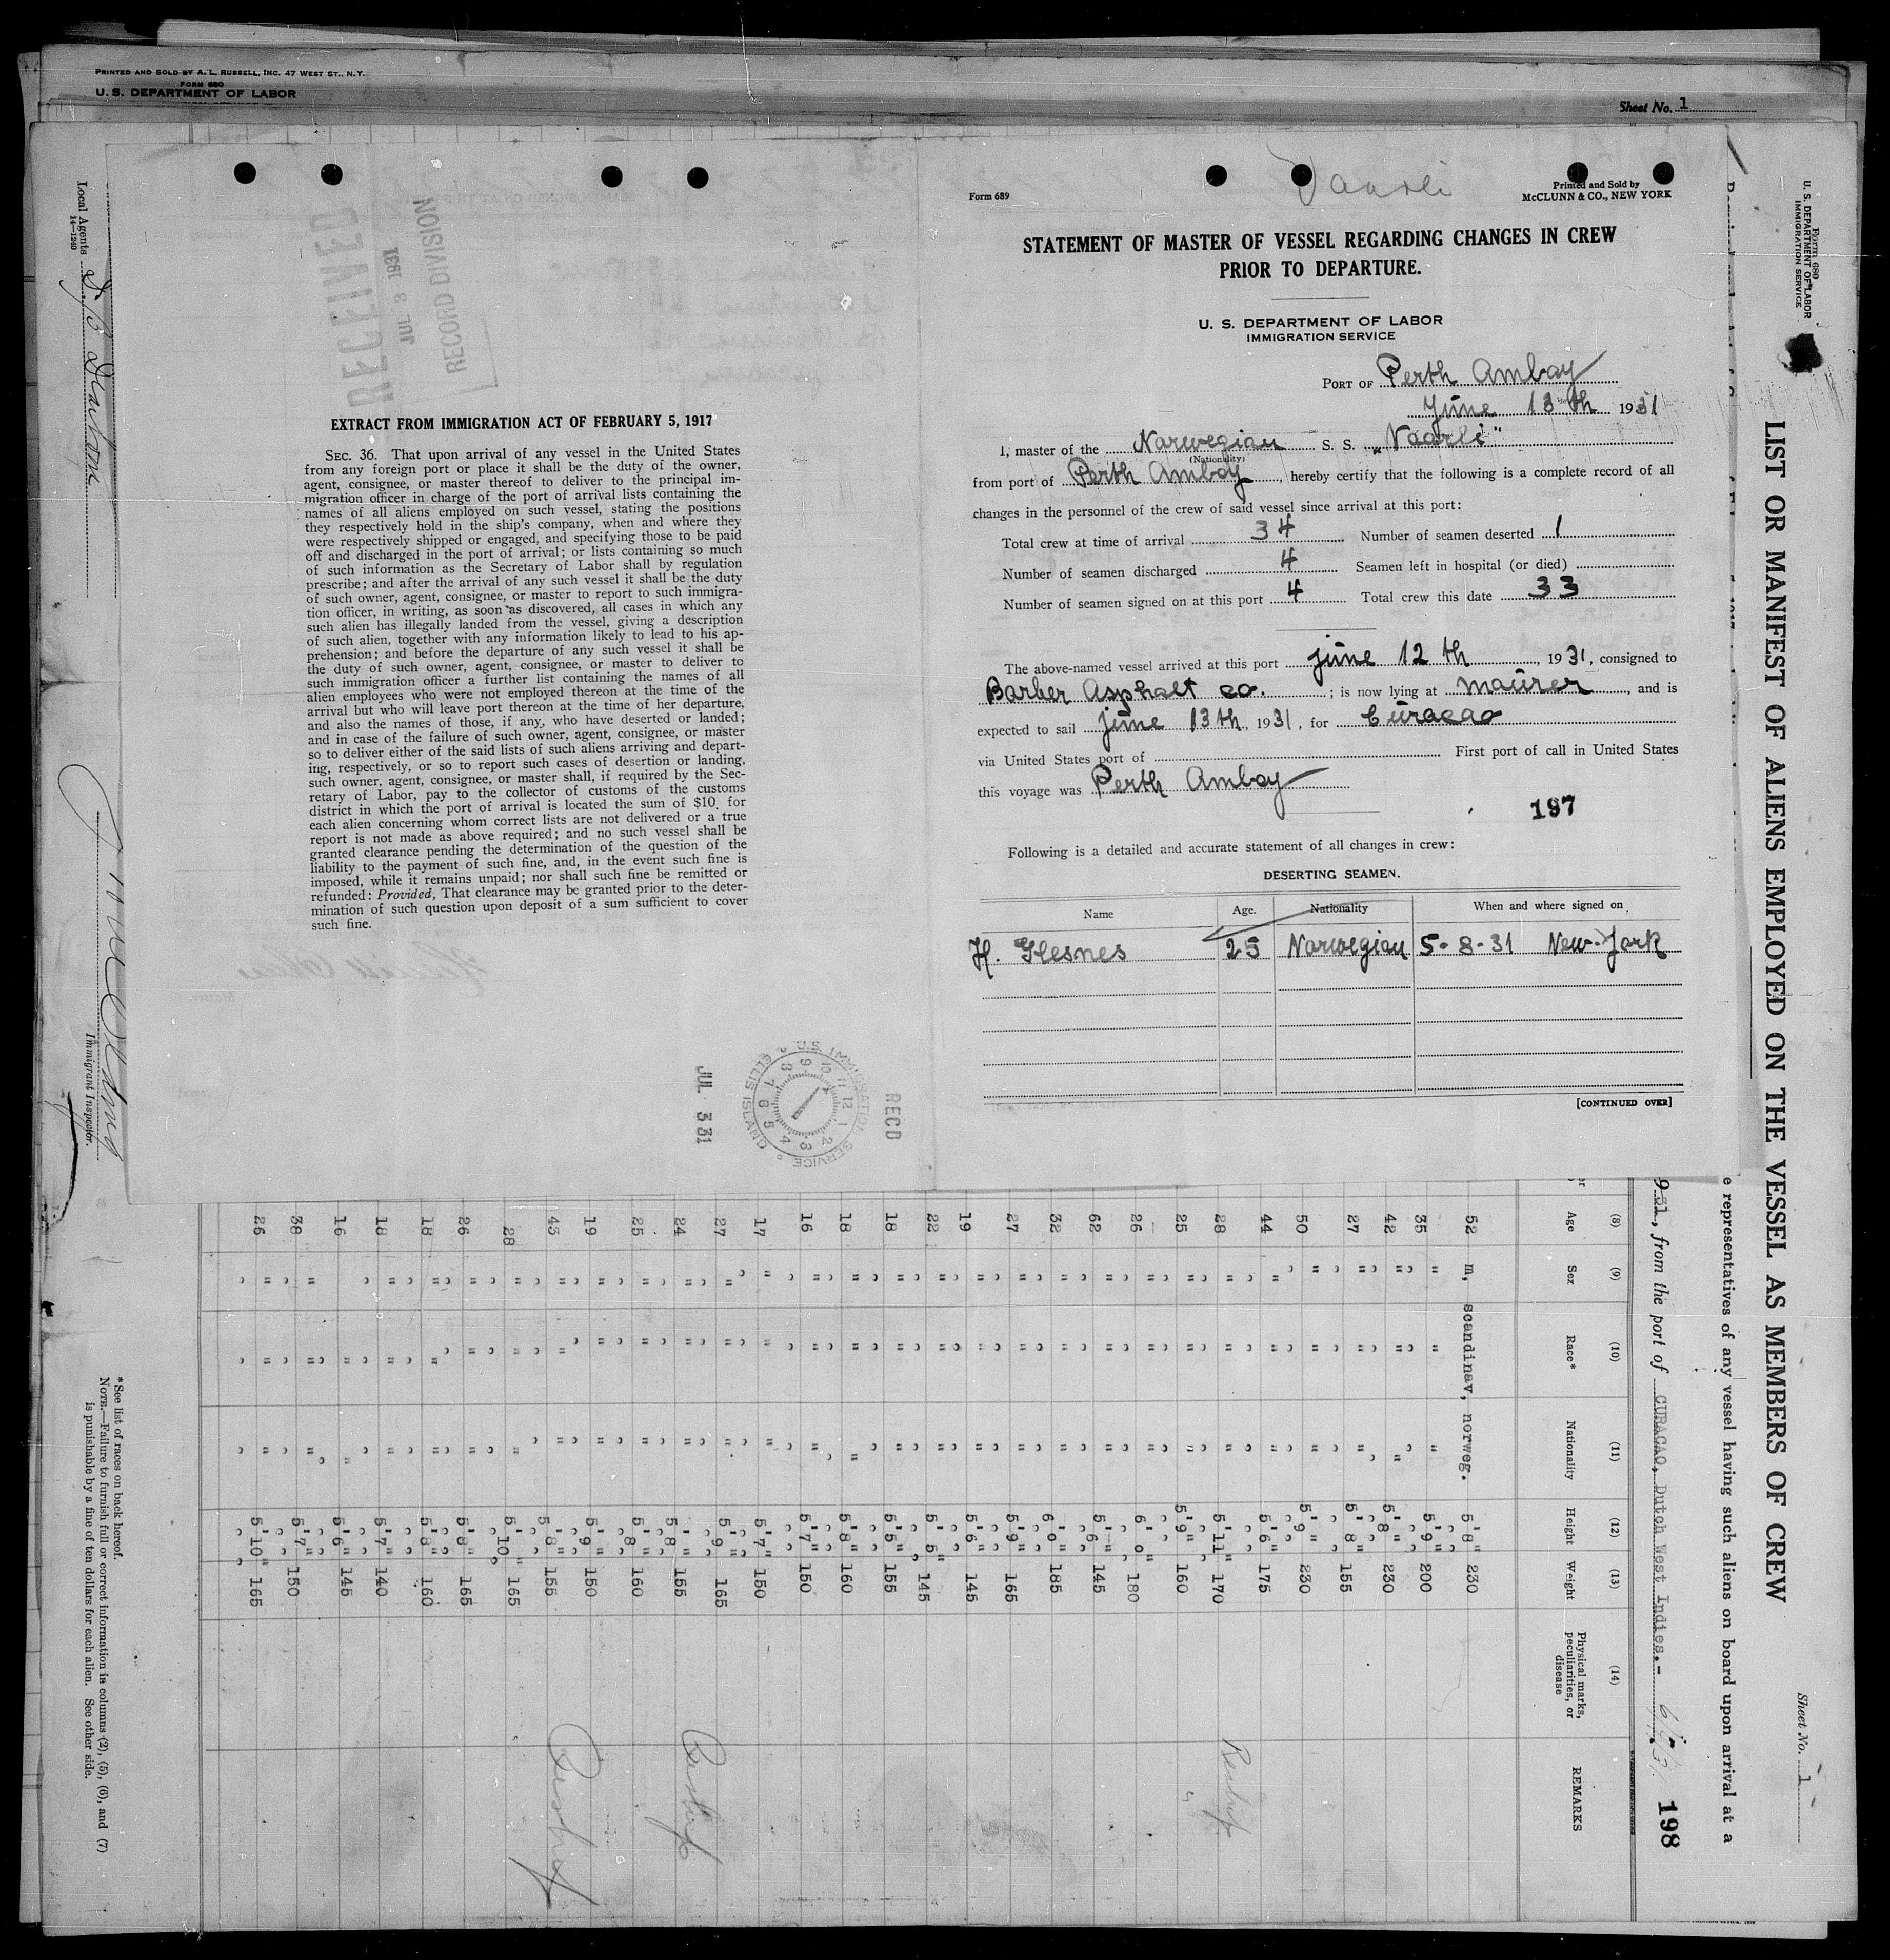 PRINTED AND SOLD BY A. L. RUSSELL, INC. 47 WEST ST., N.Y.
FORM 680
U. S. DEPARTMENT OF LABOR
Sheet No. 1
Local Agents
14—1240
Immigrant Inspector.
RECEIVED
JUL 3 1931
RECORD DIVISION
EXTRACT FROM IMMIGRATION ACT OF FEBRUARY 5, 1917
SEC. 36. That upon arrival of any vessel in the United States
from any foreign port or place it shall be the duty of the owner,
agent, consignee, or master thereof to deliver to the principal im-
migration officer in charge of the port of arrival lists containing the
names of all aliens employed on such vessel, stating the positions
they respectively hold in the ship's company, when and where they
were respectively shipped or engaged, and specifying those to be paid
off and discharged in the port of arrival; or lists containing so much
of such information as the Secretary of Labor shall by regulation
prescribe; and after the arrival of any such vessel it shall be the duty
of such owner, agent, consignee, or master to report to such immigra-
tion officer, in writing, as soon as discovered, all cases in which any
such alien has illegally landed from the vessel, giving a description
of such alien, together with any information likely to lead to his ap-
prehension; and before the departure of any such vessel it shall be
the duty of such owner, agent, consignee, or master to deliver to
such immigration officer a further list containing the names of all
alien employees who were not employed thereon at the time of the
arrival but who will leave port thereon at the time of her departure,
and also the names of those, if any, who have deserted or landed;
and in case of the failure of such owner, agent, consignee, or master
so to deliver either of the said lists of such aliens arriving and depart-
ing, respectively, or so to report such cases of desertion or landing,
such owner, agent, consignee, or master shall, if required by the Sec-
retary of Labor, pay to the collector of customs of the customs
district in which the port of arrival is located the sum of $10 for
each alien concerning whom correct lists are not delivered or a true
report is not made as above required; and no such vessel shall be
granted clearance pending the determination of the question of the
liability to the payment of such fine, and, in the event such fine is
imposed, while it remains unpaid; nor shall such fine be remitted or
refunded: Provided, That clearance may be granted prior to the deter-
mination of such question upon deposit of a sum sufficient to cover
such fine.
JUL 3 31
U.S. IMMIGRATION SERVICE ELLIS ISLAND
RECD
Form 689
Vaarli
Printed and Sold by
McCLUNN & CO., NEW YORK
STATEMENT OF MASTER OF VESSEL REGARDING CHANGES IN CREW
PRIOR TO DEPARTURE.
U. S. DEPARTMENT OF LABOR
IMMIGRATION SERVICE
PORT OF Perth Amboy
June 13th 1931
I, master of the Norwegian S. S. "Vaarli"
(Nationality)
from port of Perth Amboy, hereby certify that the following is a complete record of all
changes in the personnel of the crew of said vessel since arrival at this port:
Total crew at time of arrival 34 Number of seamen deserted 1
Number of seamen discharged 4 Seamen left in hospital (or died)
Number of seamen signed on at this port 4 Total crew this date 33
The above-named vessel arrived at this port June 12 th, 1931, consigned to
Barber Asphalt co.; is now lying at Maurer, and is
expected to sail June 13th, 1931, for Curacao
via United States port of First port of call in United States
this voyage was Perth Amboy
197
Following is a detailed and accurate statement of all changes in crew:
DESERTING SEAMEN.
Name Age. Nationality When and where signed on
H. Glesnes 25 Norwegian 5-8-31 New-York
[CONTINUED OVER]
Form 680
U. S. DEPARTMENT OF LABOR
IMMIGRATION SERVICE
Sheet No. 1
LIST OR MANIFEST OF ALIENS EMPLOYED ON THE VESSEL AS MEMBERS OF CREW
e representatives of any vessel having such aliens on board upon arrival at a
931, from the port of CURACAO, Dutch West Indies.-
198
(8) (9) (10) (11) (12) (13) (14)
Age Sex Race* Nationality Height Weight Physical marks, peculiarities, or disease REMARKS
52 m, scandinav, norweg. 5'8" 230
35 " " " 5'9" 200
42 " " " 5'8" 230
27 " " " 5'8" 155
50 " " " 5'9" 230
44 " " " 5'6" 175
28 " " " 5'11" 170
25 " " " 5'9" 160
26 " " " 6'0" 180
62 " " " 5'6" 145
32 " " " 6'0" 185
27 " " " 5'9" 165
19 " " " 5'6" 145
22 " " " 5'5" 145
18 " " " 5'5" 155
18 " " " 5'8" 160
16 " " " 5'7" 150
17 " " " 5'7" 150
27 " " " 5'9" 165
24 " " " 5'8" 155
25 " " " 5'8" 160
19 " " " 5'9" 150
43 " " " 5'8" 155
28 " " " 5'10" 165
26 " " " 5'8" 165
18 " " " 5'8" 160
18 " " " 5'7" 140
16 " " " 5'6" 145
38 " " " 5'7" 150
26 " " " 5'10" 165
*See list of races on back hereof.
NOTE.—Failure to furnish full or correct information in columns (2), (5), (6), and (7)
is punishable by a fine of ten dollars for each alien. See other side.